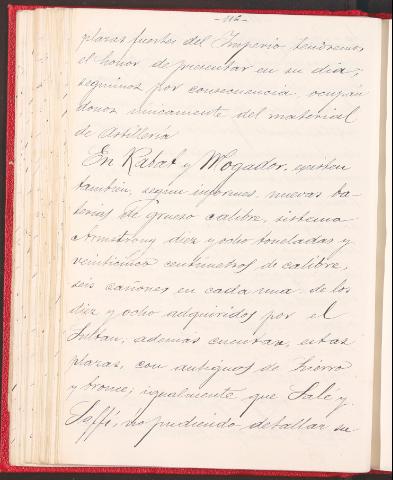 -112-
plazas fuertes del Imperio tendremos
el honor de presentar en su dia;
seguimos por consecuencia, ocupan
donos unicamente del material
de Artilleria
En Rabat y Mogador, existen
tambien, segun informes, nuevas ba-
terias de grueso calibre, sistema
Armstrong diez y ocho toneladas y
veinticinco centimetros de calibre,
seis cañones en cada una de los
diez y ocho adquiridos por el
Sultan, además cuentan, estas
plazas, con antiguos de hierro
y bronce; igualmente que Salé y
Saffi, no pudiendo detallar su